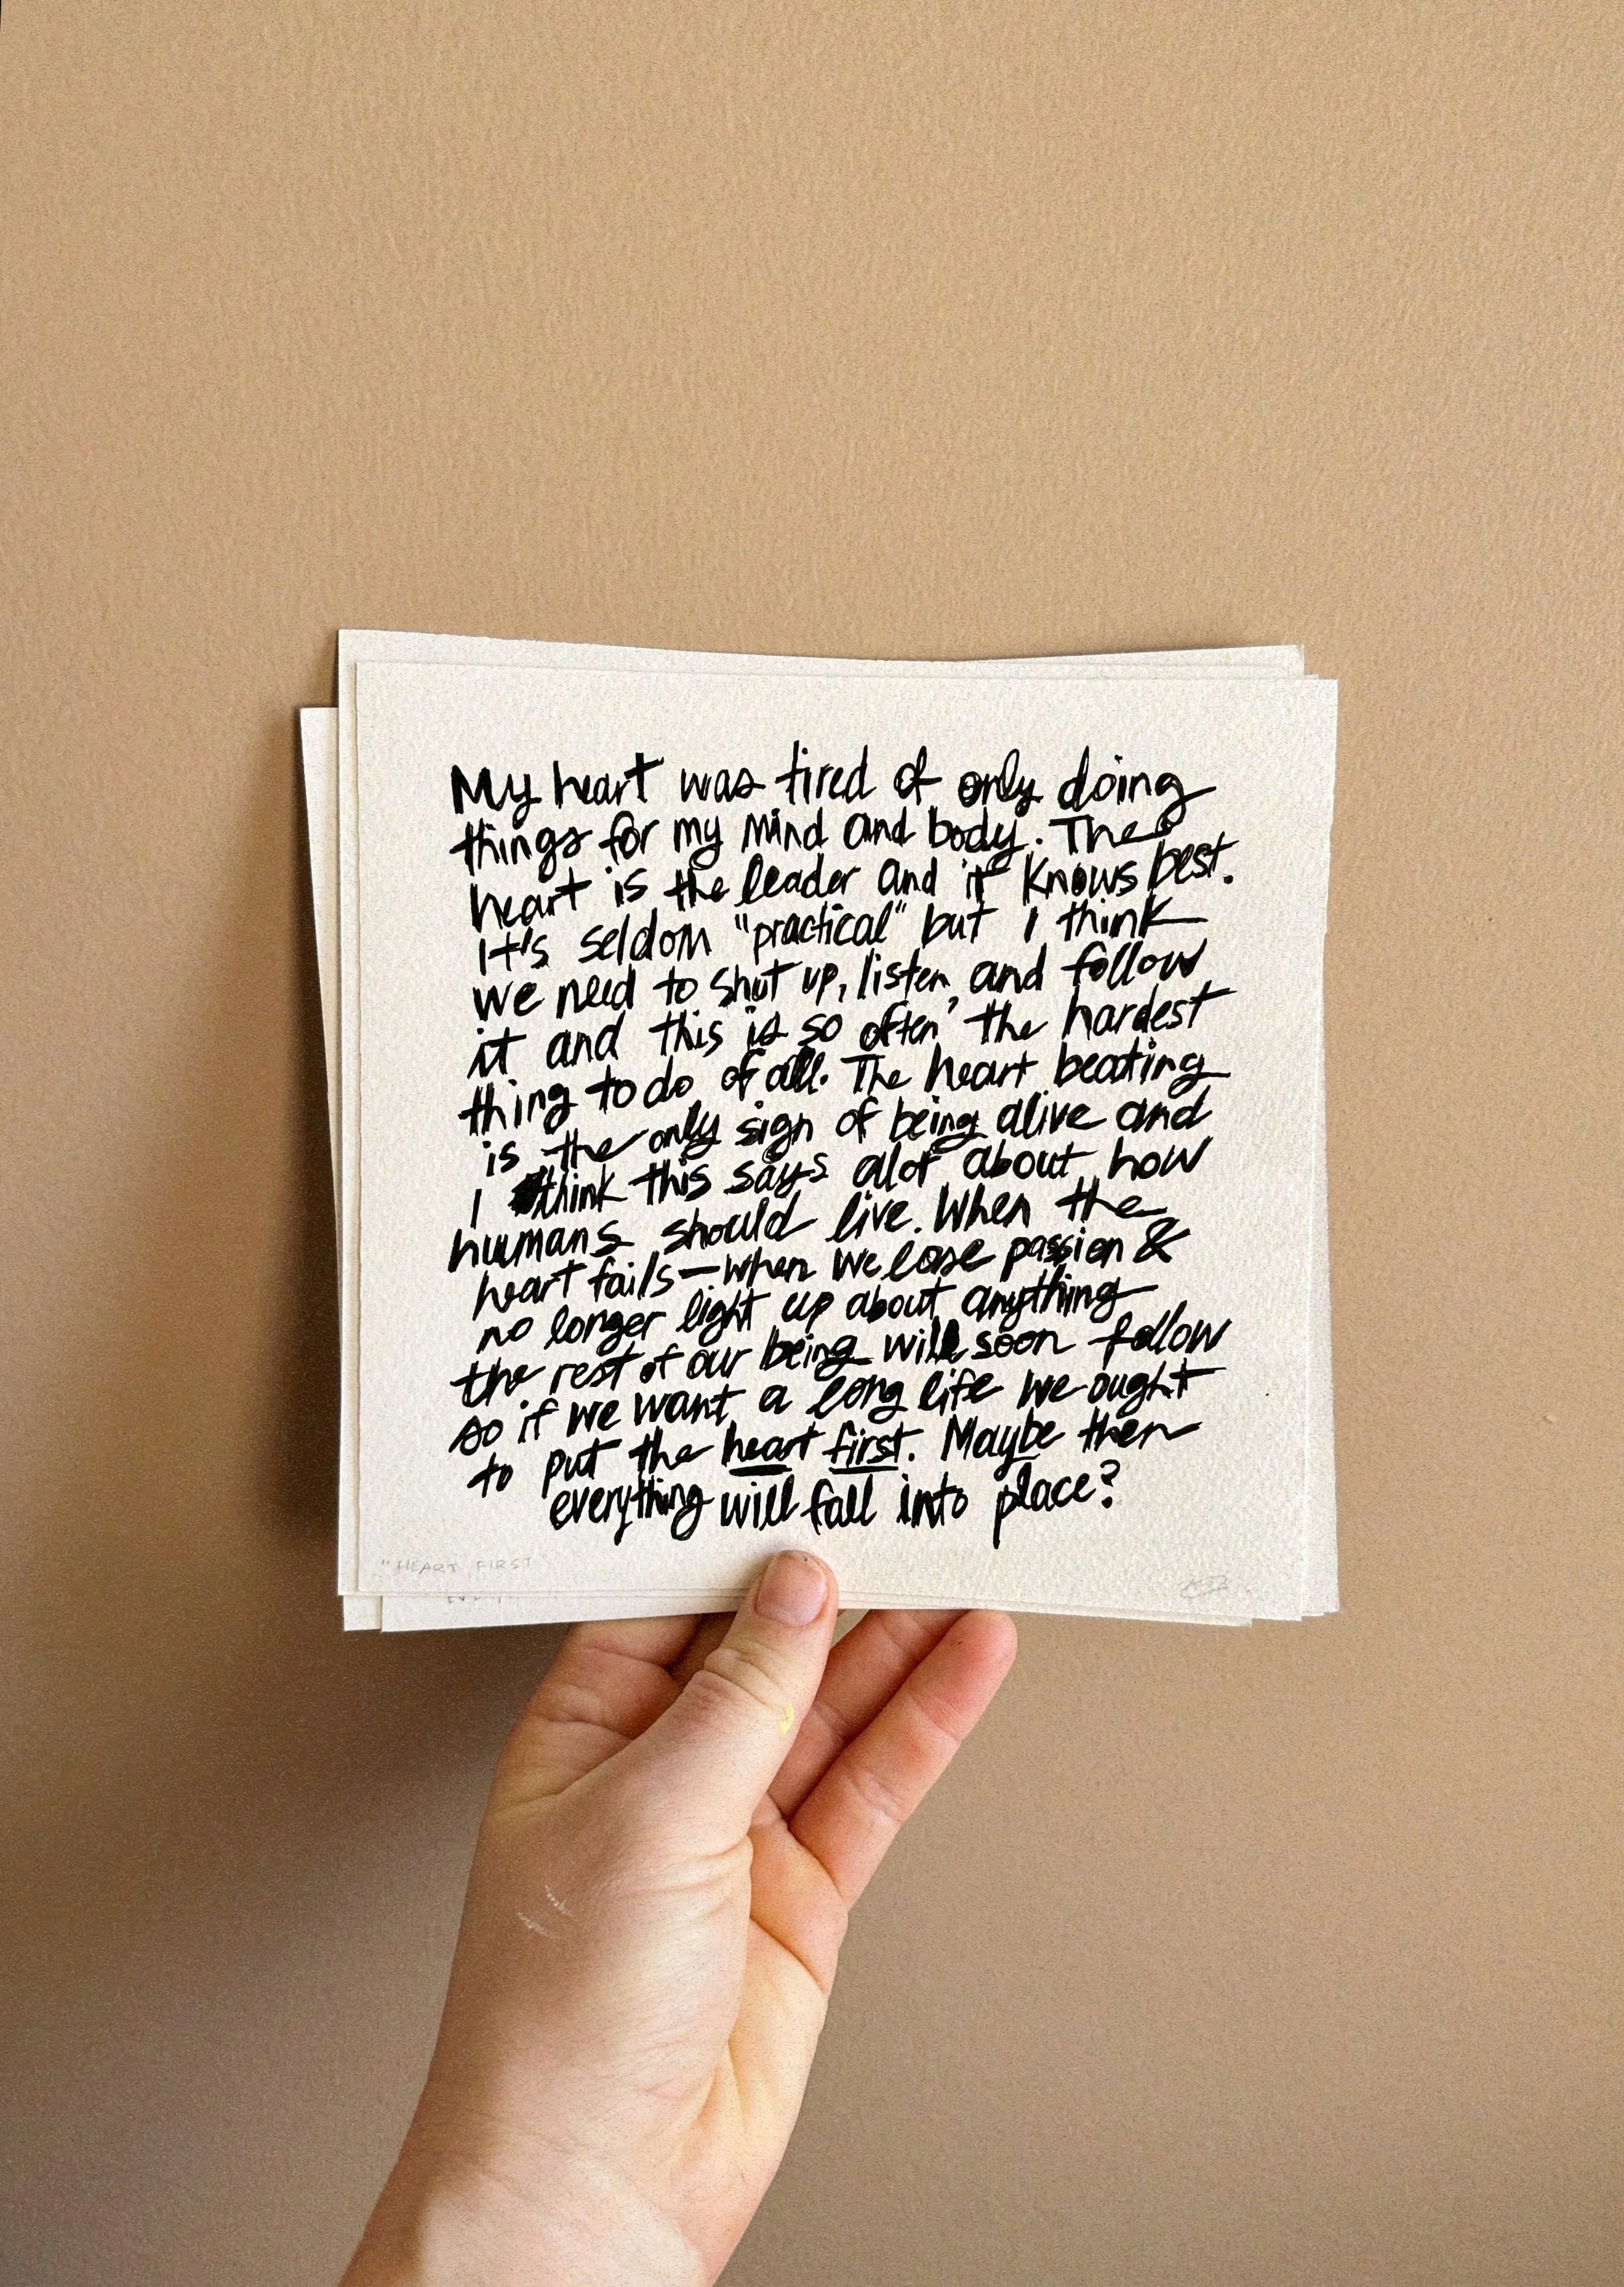 My heart was tired of only doing
things for my mind and body. The
heart is the leader and it knows best.
It's seldom "practical" but I think
we need to shut up, listen, and follow
it and this is so often the hardest
thing to do of all. The heart beating
is the only sign of being alive and
I think this says alot about how
humans should live. When the
heart fails—when we lose passion &
no longer light up about anything
the rest of our being will soon follow
so if we want a long life we ought
to put the heart first. Maybe then
everything will fall into place?
"HEART FIRST